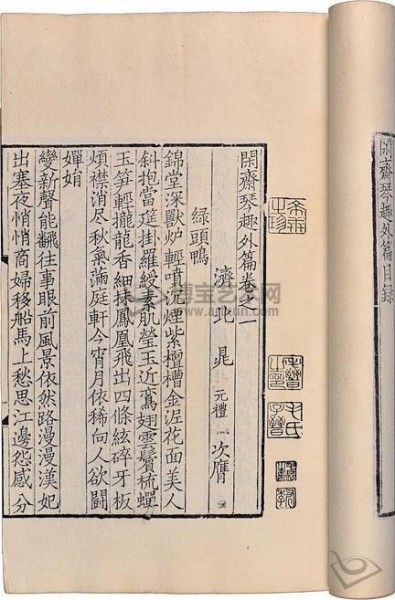 閑齋琴趣外篇目錄
閑齋琴趣外篇卷之一
濟北晁 元禮 次膺
綠頭鴨
錦堂深獸炉輕噴沉煙紫檀槽金泥花面美人
斜抱當筵掛羅綬素肌瑩玉近鸞翅雲鬢梳蟬
玉笋輕攏龍香細抹鳳凰飛出四條絃碎牙板
煩襟消盡秋氣滿庭軒今宵月依稀向人欲鬭
嬋娟
變新聲能翻往事眼前風景依然路漫漫漢妃
出塞夜悄悄商婦移船馬上愁思江邊怨感分
希世之珍
毛氏子晉
博宝艺术网